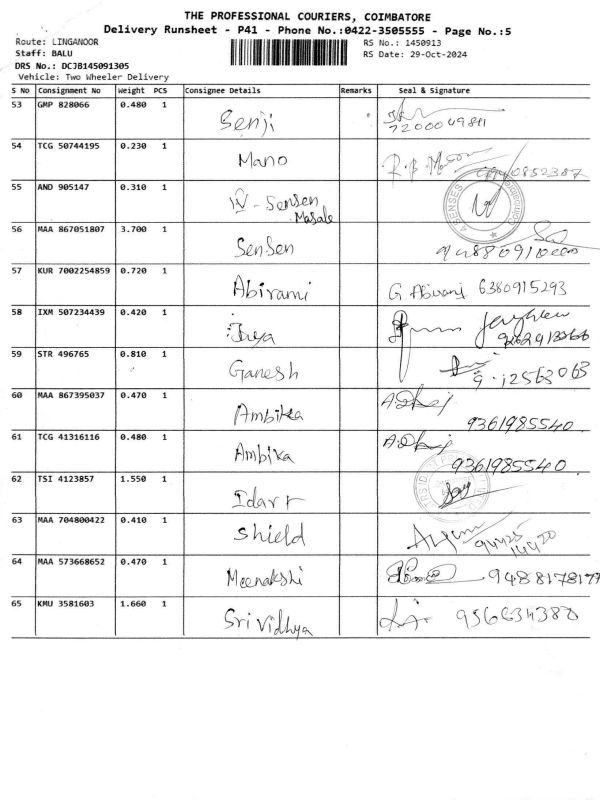 THE PROFESSIONAL COURIERS, COIMBATORE
Delivery Runsheet - P41 - Phone No.:0422-3505555 - Page No.:5
Route: LINGANOOR RS No.: 1450913
Staff: BALU RS Date: 29-Oct-2024
DRS No.: DCJB145091305
Vehicle: Two Wheeler Delivery
S No Consignment No Weight PCS Consignee Details Remarks Seal & Signature
53 GMP 828066 0.480 1 Senji
7200049811
54 TCG 50744195 0.230 1 Mano
55 AND 905147 0.310 1 Sensen
Masale
4 SENSES
56 MAA 867051807 3.700 1 SenSen
57 KUR 7002254859 0.720 1 Abirami G Abirami 6380915293
58 IXM 507234439 0.420 1 Jaya
59 STR 496765 0.810 1 Ganesh
60 MAA 867395037 0.470 1 Ambika
9361985540
61 TCG 41316116 0.480 1 Ambika
9361985540
62 TSI 4123857 1.550 1
63 MAA 704800422 0.410 1 Shield
94425
14420
64 MAA 573668652 0.470 1 Meenakshi 9488178177
65 KMU 3581603 1.660 1 Sri Vidhya 956634380